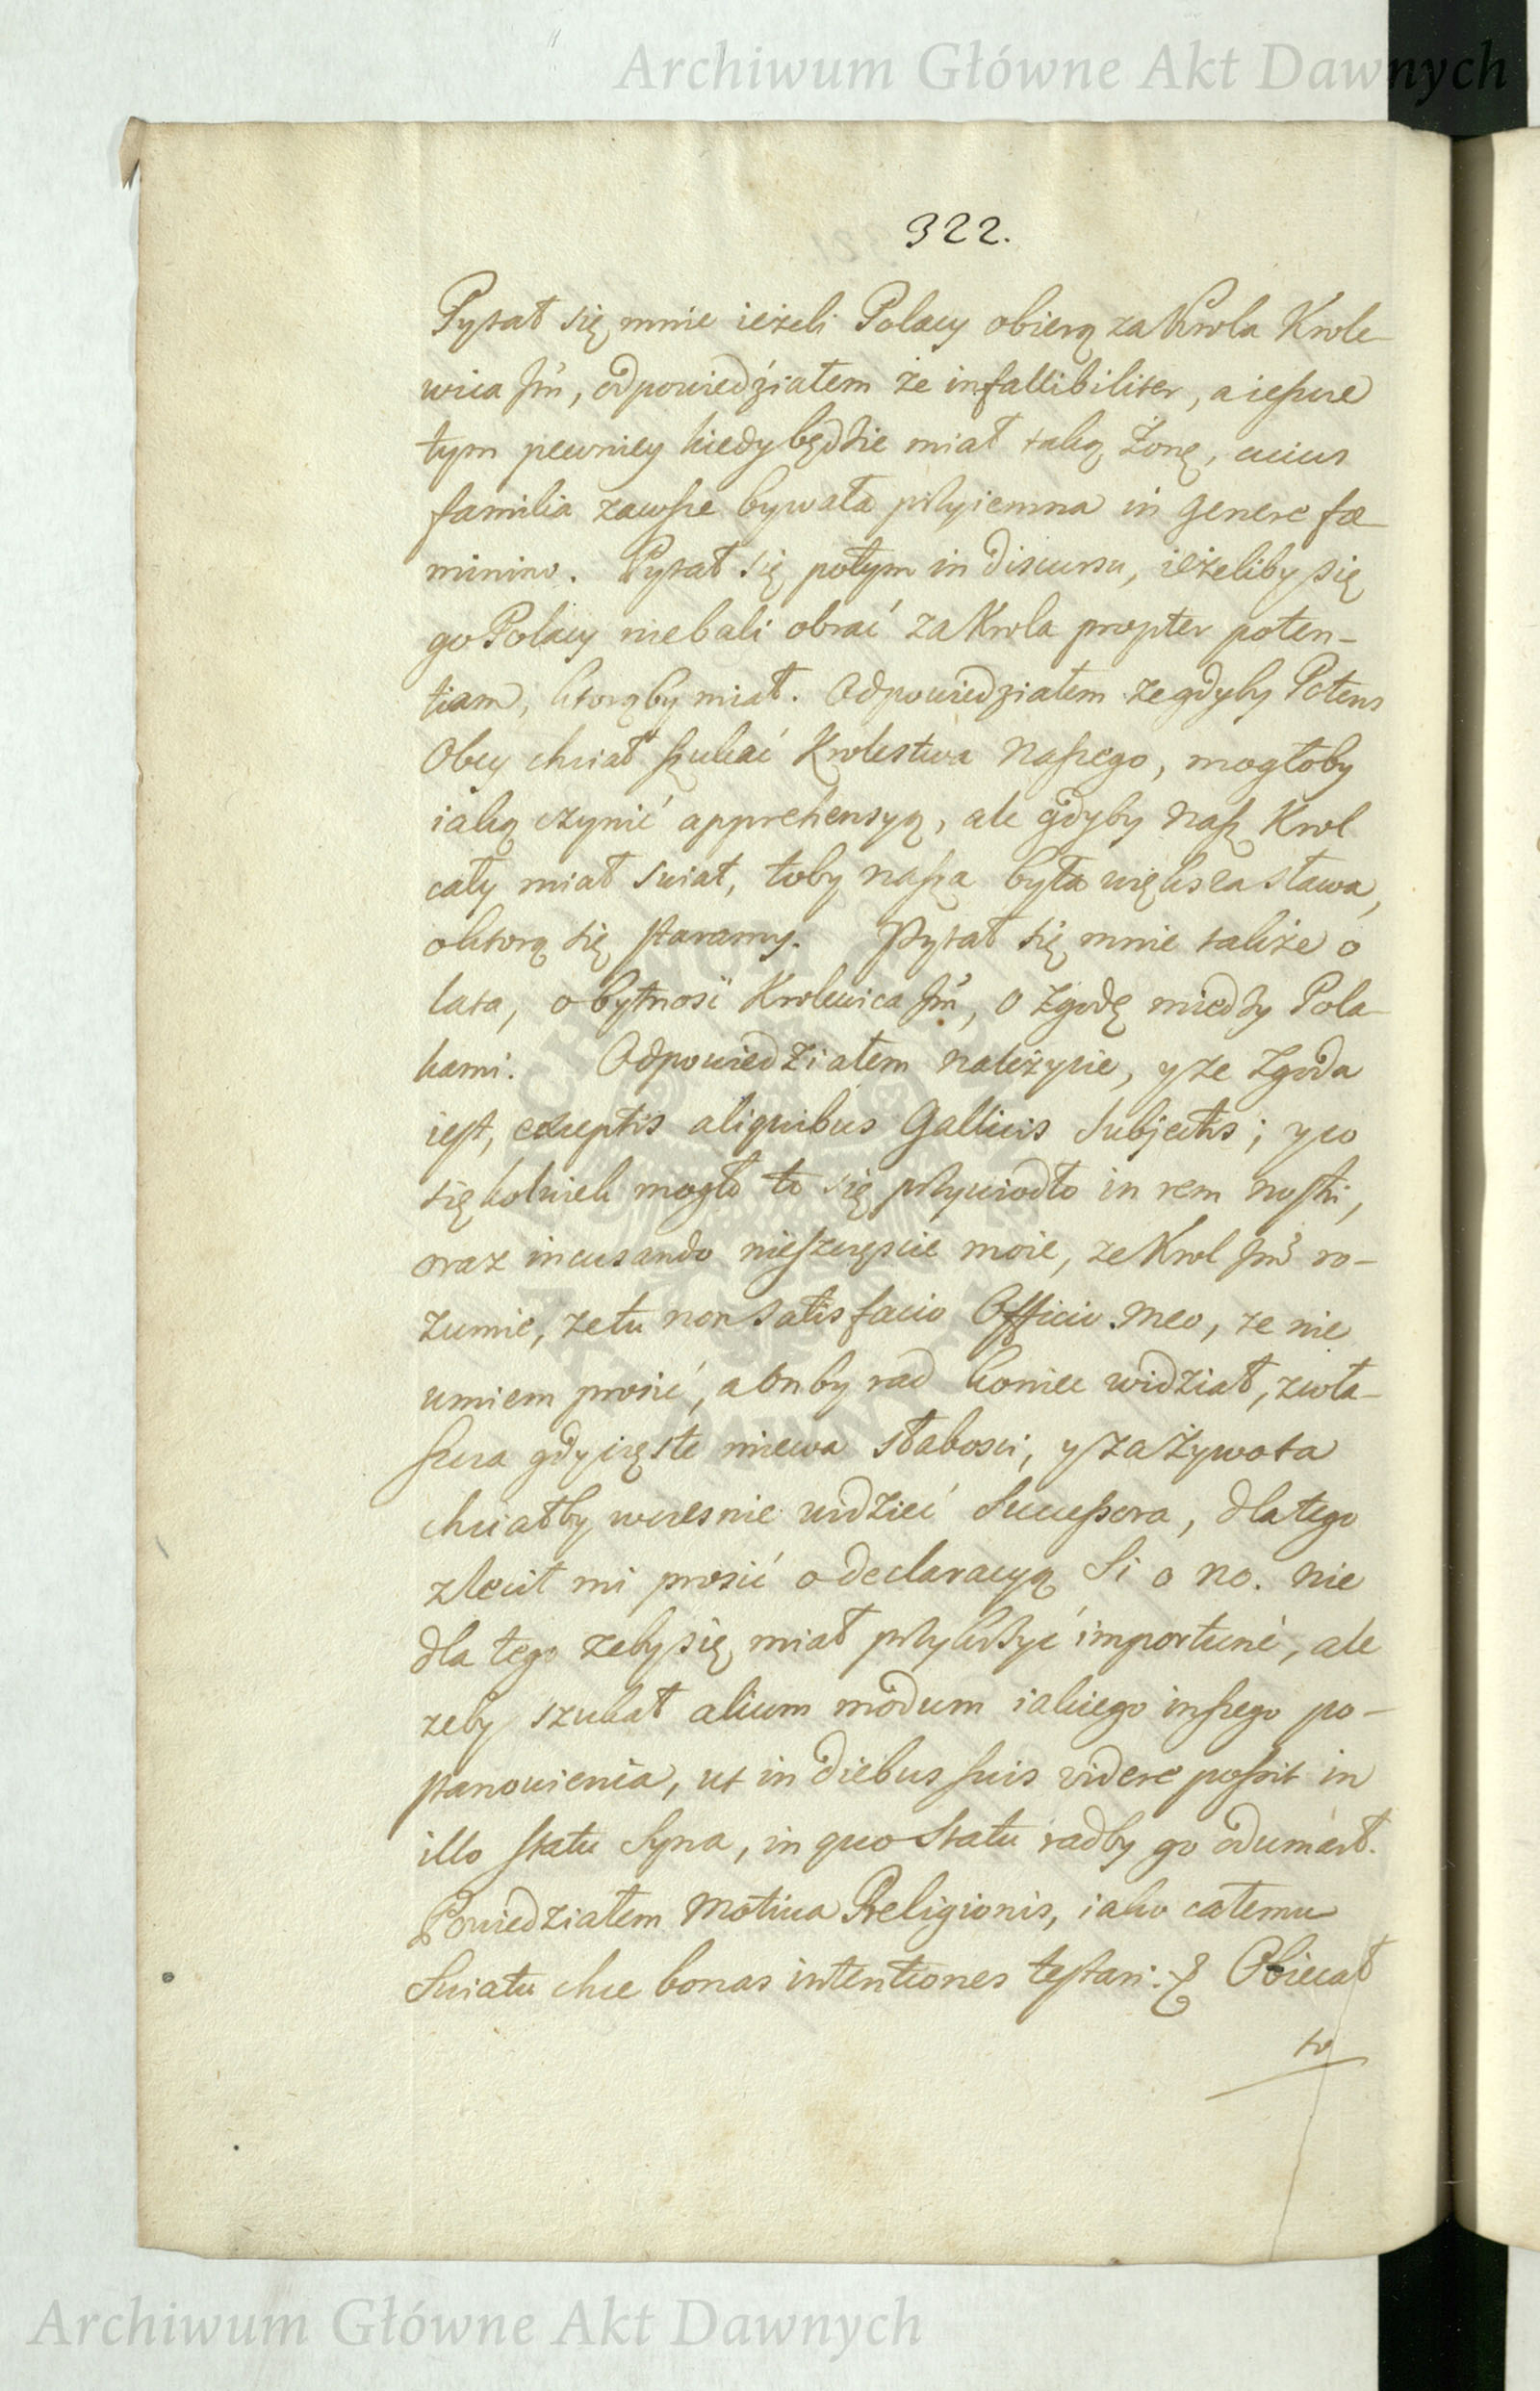 Archiwum Główne Akt Dawnych
322.
Pytał się mnie ieżeli Polacy obiorą za Krola Krole-
wica Jmć, odpowiedziałem że infallibiliter, a ieszcze
tym pewniey kiedy będzie miał taką Żonę, cuius
familia zawsze bywała przyiemna in genere fœ-
minino. Pytał się potym in discursu, ieżeliby się
go Polacy niebali obrać za Krola propter poten-
tiam, ktorąby miał. Odpowiedziałem że gdyby Potens
Obcy chciał szukać Krolestwa Naszego, mogłoby
iaką czynić apprehensyą, ale gdyby nasz Krol
cały miał swiat, toby nasza była większa sława,
oktorą się staramy. Pytał się mnie także o
lata, o bytność Krolewica Jmć, o zgodę między Pola-
kami. Odpowiedziałem należycie, y że Zgoda
iest, exceptis aliquibus Gallicis Subjectis; y co
się kolwiek mogło to się przywiodło in rem nostri,
oraz incusando nieszczęscie moie, że Krol Jmć ro-
zumie, że tu non satisfacio Officio meo, że nie
umiem prosić, a Onby rad koniec widział, zwła-
szcza gdy częste miewa słabosci, y za żywota
chciałby wczesnie widzieć Successora, dlatego
zlecił mi prosić o declaracyą Si o no. nie
dla tego żeby się miał przykrzyć importunè, ale
żeby szukał alium modum iakiego inszego po-
stanowienia, ut in diebus suis videre possit in
illo statu Syna, in quo statu radby go odumarł.
Powiedziałem Motiva Religionis, iako całemu
Swiatu chce bonas intentiones testari. Obiecał
to
Archiwum Główne Akt Dawnych